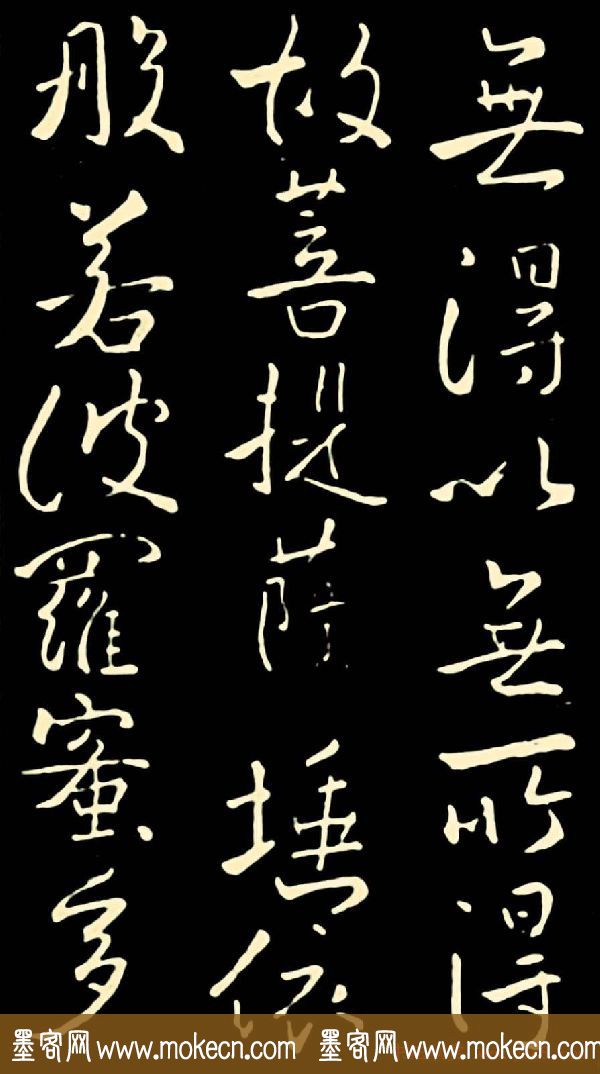 無得以無所得
故菩提薩埵依
般若波羅蜜多
墨客网 www.mokecn.com 墨客网 www.mokecn.com